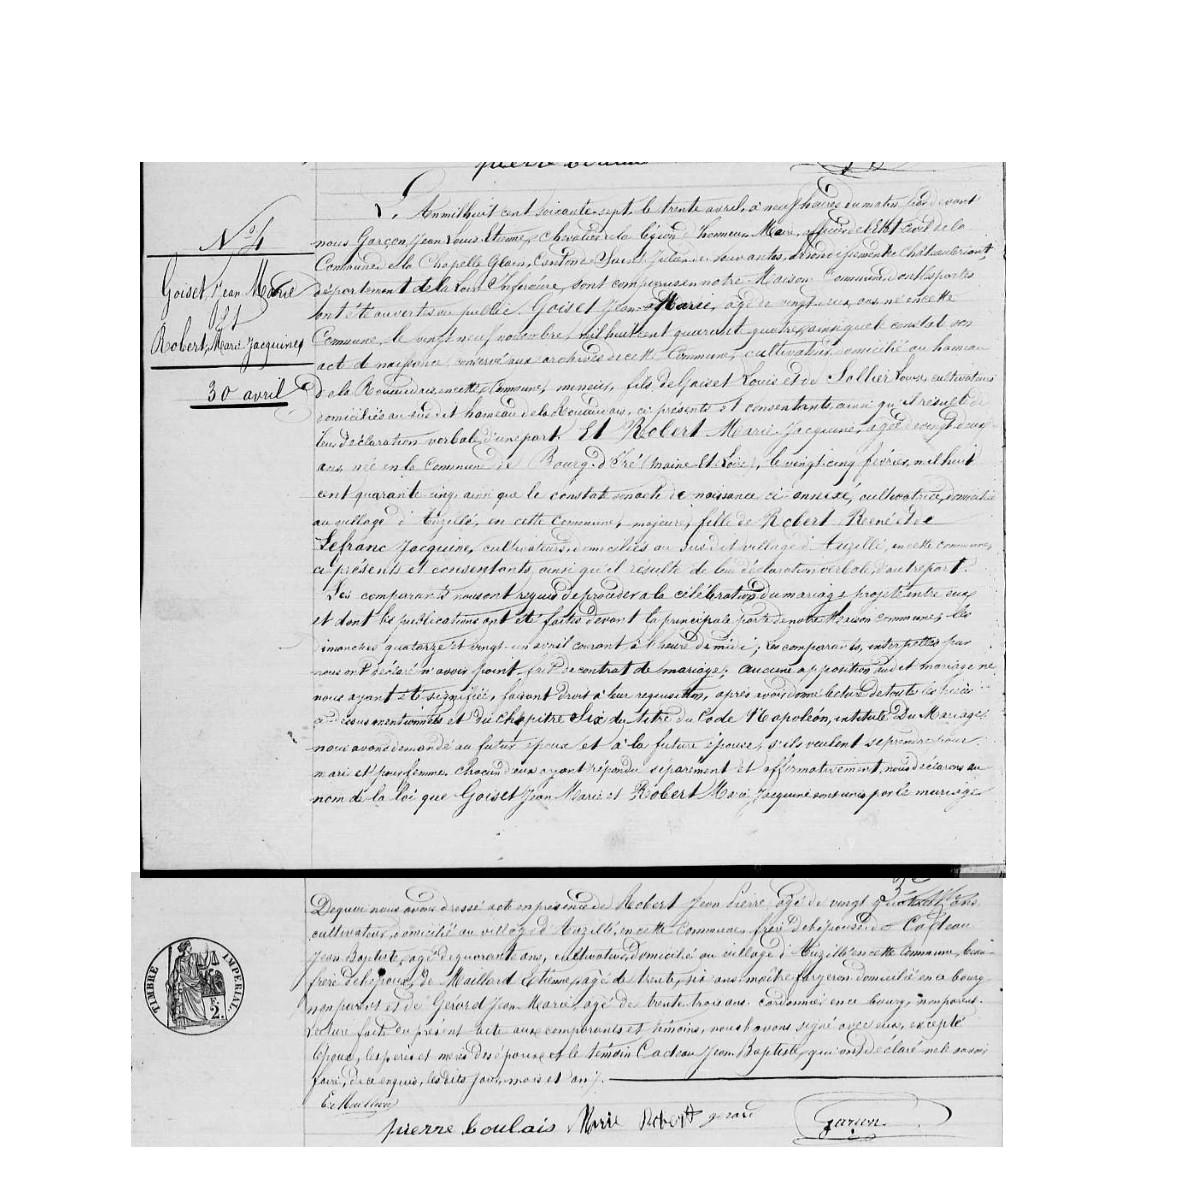 pierre
N° 4
Goiset, Jean Marie
et
Robert, Marie Jacquine
30 avril
L'An mil huit cent soixante-sept, le trente avril, à neuf heures du matin, par devant
nous Garçon, Jean Louis Etienne, Chevalier de la Légion d'honneur, Maire, officier de l'Etat Civil de la
Commune de la Chapelle Glain, Canton de Saint Julien de Vouvantes, arrondissement de Châteaubriant,
département de la Loire Inférieure, sont comparus en notre Maison Commune dont les portes
ont été ouvertes au public, Goiset Jean Marie, âgé de vingt deux ans, né en cette
Commune, le vingt neuf novembre, mil huit cent quarante quatre, ainsi que le constate son
acte de naissance conservé aux archives de cette Commune, cultivateur, domicilié au hameau
de la en cette Commune, mineur, fils de Goiset Louis et de Sollier Louise, cultivateurs
domiciliés au susdit hameau de la ci présents et consentants, ainsi qu'il résulte de
leur déclaration verbale, d'une part. Et Robert Marie Jacquine, âgée de vingt deux
ans, née en la Commune de Bourg d'Iré (Maine et Loire), le vingt cinq février, mil huit
cent quarante cinq, ainsi que le constate son acte de naissance ci-annexé, cultivatrice, domiciliée
au village d'Auzillé, en cette commune, majeure, fille de Robert René et de
Lefranc Jacquine, cultivateurs, domiciliés au susdit village d'Auzillé, en cette commune,
ci présents et consentants, ainsi qu'il résulte de leur déclaration verbale, d'autre part.
Les comparants nous ont requis de procéder à la célébration du mariage projeté entre eux
et dont les publications ont été faites devant la principale porte de notre Maison commune, les
dimanches quatorze et vingt-un avril courant à l'heure de midi; les comparants, interpellés par
nous ont déclaré n'avoir point fait de contrat de mariage; aucune opposition audit mariage ne
nous ayant été signifiée, faisant droit à leur réquisition, après avoir donné lecture de toutes les pièces
ci-dessus mentionnées et du chapitre Six du titre du Code Napoléon, intitulé Du Mariage,
nous avons demandé au futur époux et à la future épouse, s'ils veulent se prendre pour
mari et pour femme, chacun d'eux ayant répondu séparément et affirmativement, nous déclarons au
nom de la loi que Goiset Jean Marie et Robert Marie Jacquine sont unis par le mariage.
De quoi nous avons dressé acte en présence de Robert Jean Pierre, âgé de vingt quatre ans
cultivateur, domicilié au village d'Auzillé, en cette commune, frère de l'épouse, de Cadeau
Jean Baptiste, âgé de quarante ans, cultivateur, domicilié au village d'Auzillé en cette commune, beau-
frère de l'époux, de Maillard Etienne, âgé de trente six ans, maître forgeron domicilié en ce bourg
non parent et de Gérard Jean Marie, âgé de trente trois ans, cordonnier en ce bourg, non parent.
Lecture faite du présent acte aux comparants et témoins, nous l'avons signé avec eux, excepté
l'époux, les pères et mères des époux et le témoin Cadeau Jean Baptiste, qui ont déclaré ne le savoir
faire, de ce enquis, les dits jour, mois et an.
TIMBRE IMPERIAL
2.
E. Maillard
pierre Coulais Marie Robert gerard Garçon